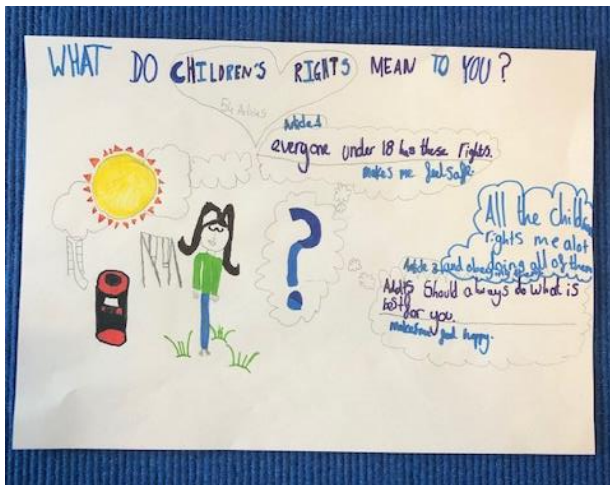 WHAT DO CHILDREN'S RIGHTS MEAN TO YOU?
54 Articles
Article 1
everyone under 18 has these rights.
makes me feel safe.
?
All the child
rights me alot
and obeying all of them
Article 3
Adults Should always do what is
best for you.
makes me feel happy.